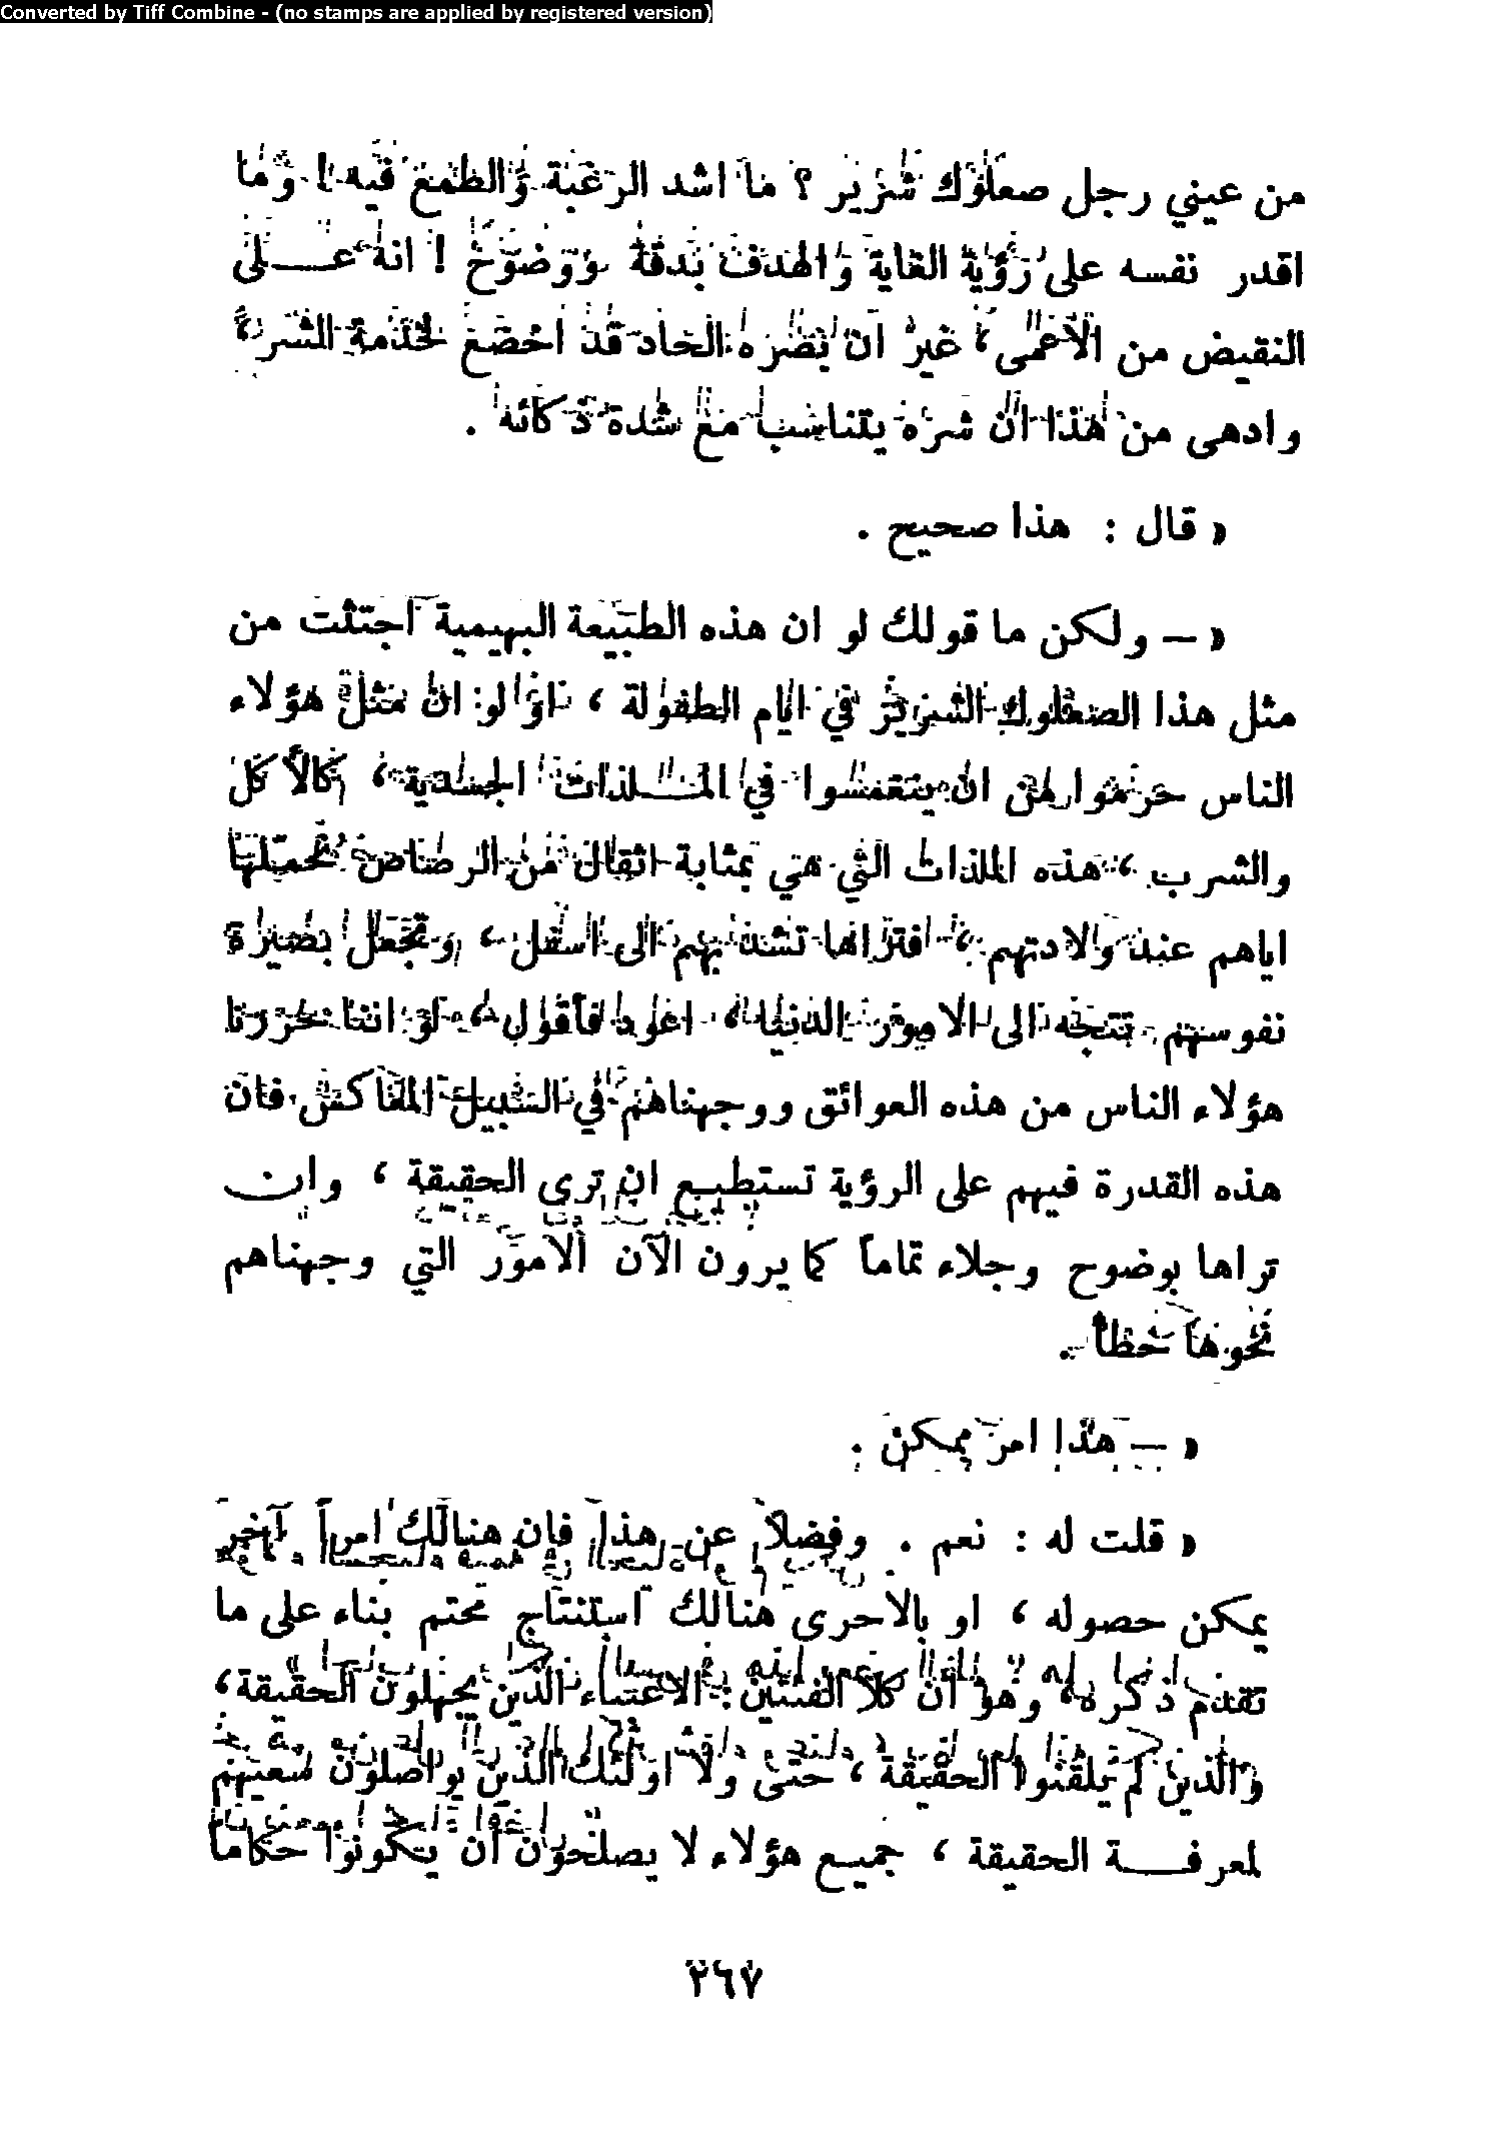 Converted by Tiff Combine - (no stamps are applied by registered version)
من عيني رجل صعلوك شرير ؟ ما اشد الرغبة والطمع فيه ! وما
اقدر نفسه على رؤية الغاية والهدف بدقة ووضوح ! انه عـــلى
النقيض من الأعمى ، غير ان بصره الحاد قد اخضع لخدمة الشر ،
وادهى من هذا ان شره يتناسب مع شدة ذكائه .
« قال : هذا صحيح .
« — ولكن ما قولك لو ان هذه الطبيعة البهيمية اجتثت من
مثل هذا الصعلوك الشرير في ايام الطفولة ، او لو ان مثل هؤلاء
الناس حرموا من ان ينغمسوا في المـــلذات الجسدية ، كالأكل
والشرب ، هذه الملذات التي هي بمثابة اثقال من الرصاص تحملها
اياهم عند ولادتهم ، فتراها تشد بهم الى اسفل ، وتجعل بصيرة
نفوسهم تتجه الى الامور الدنيا ، اعود فأقول ، لو اننا حررنا
هؤلاء الناس من هذه العوائق ووجهناهم في السبيل المعاكس فان
هذه القدرة فيهم على الرؤية تستطيع ان ترى الحقيقة ، وان
تراها بوضوح وجلاء تماماً كما يرون الآن الامور التي وجهناهم
نحوها خطأ .
« — هذا امر ممكن .
« قلت له : نعم . وفضلاً عن هذا فان هنالك امراً آخر
يمكن حصوله ، او بالاحرى هنالك استنتاج محتم بناء على ما
تقدم ذكره ، وهو ان كلا الفئتين : الذين يجهلون الحقيقة ،
والذين لم يلقنوا الحقيقة ، حتى ولا اولئك الذين يواصلون سعيهم
لمعرفـــة الحقيقة ، جميع هؤلاء لا يصلحون ان يكونوا حكاماً
٢٦٧